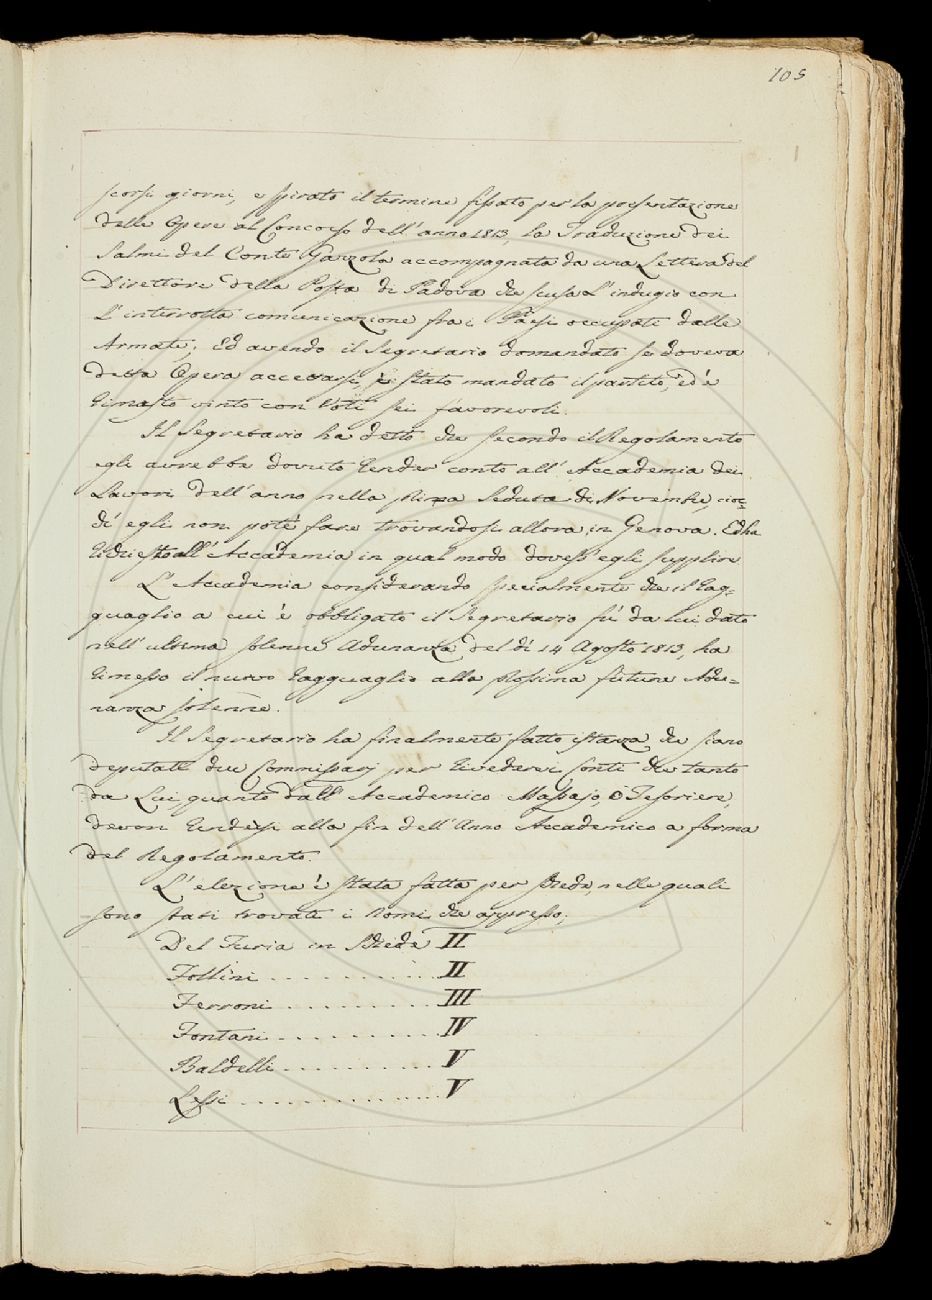 105
scorsi giorni, e spirato il termine fissato per la presentazione
delle Opere al Concorso dell'anno 1813, la Traduzione dei
Salmi del Conte Gazzola accompagnata da una Lettera del
Direttore della Posta di Padova che scusa l'indugio con
l'interrotta comunicazione fra i Paesi occupati dalle
Armate; Ed avendo il Segretario domandato se doveva
detta Opera accettarsi, è stato mandato il partito, ed è
rimasto vinto con Voti sei favorevoli.
Il Segretario ha detto che secondo il Regolamento
egli avrebbe dovuto render conto all'Accademia dei
Lavori dell'anno nella prima Seduta di Novembre, cioc=
ché egli non poté fare trovandosi allora in Genova. Ed ha
richiesto all'Accademia in qual modo dovess'egli supplire
L'Accademia considerando specialmente che il Rag=
guaglio a cui è obbligato il Segretario fù da lui dato
nell'ultima solenne Adunanza del dì 14 Agosto 1813, ha
rimesso il nuovo ragguaglio alla prossima futura Adu=
nanza solenne.
Il Segretario ha finalmente fatto istanza che siano
deputati due Commissarj per rivedere i Conti che tanto
da Lui, quanto dall'Accademico Massajo, o Tesoriere,
devon rendersi alla fin dell'Anno Accademico a forma
del Regolamento.
L'elezione è stata fatta per Schede, nelle quali
sono stati trovati i Nomi che appresso;
Del Furia in Schede II
Follini . . . . . . . . . . . . II
Ferroni . . . . . . . . . . . III
Fontani . . . . . . . . . . . IV
Baldelli . . . . . . . . . . . V
Lessi . . . . . . . . . . . . . . V